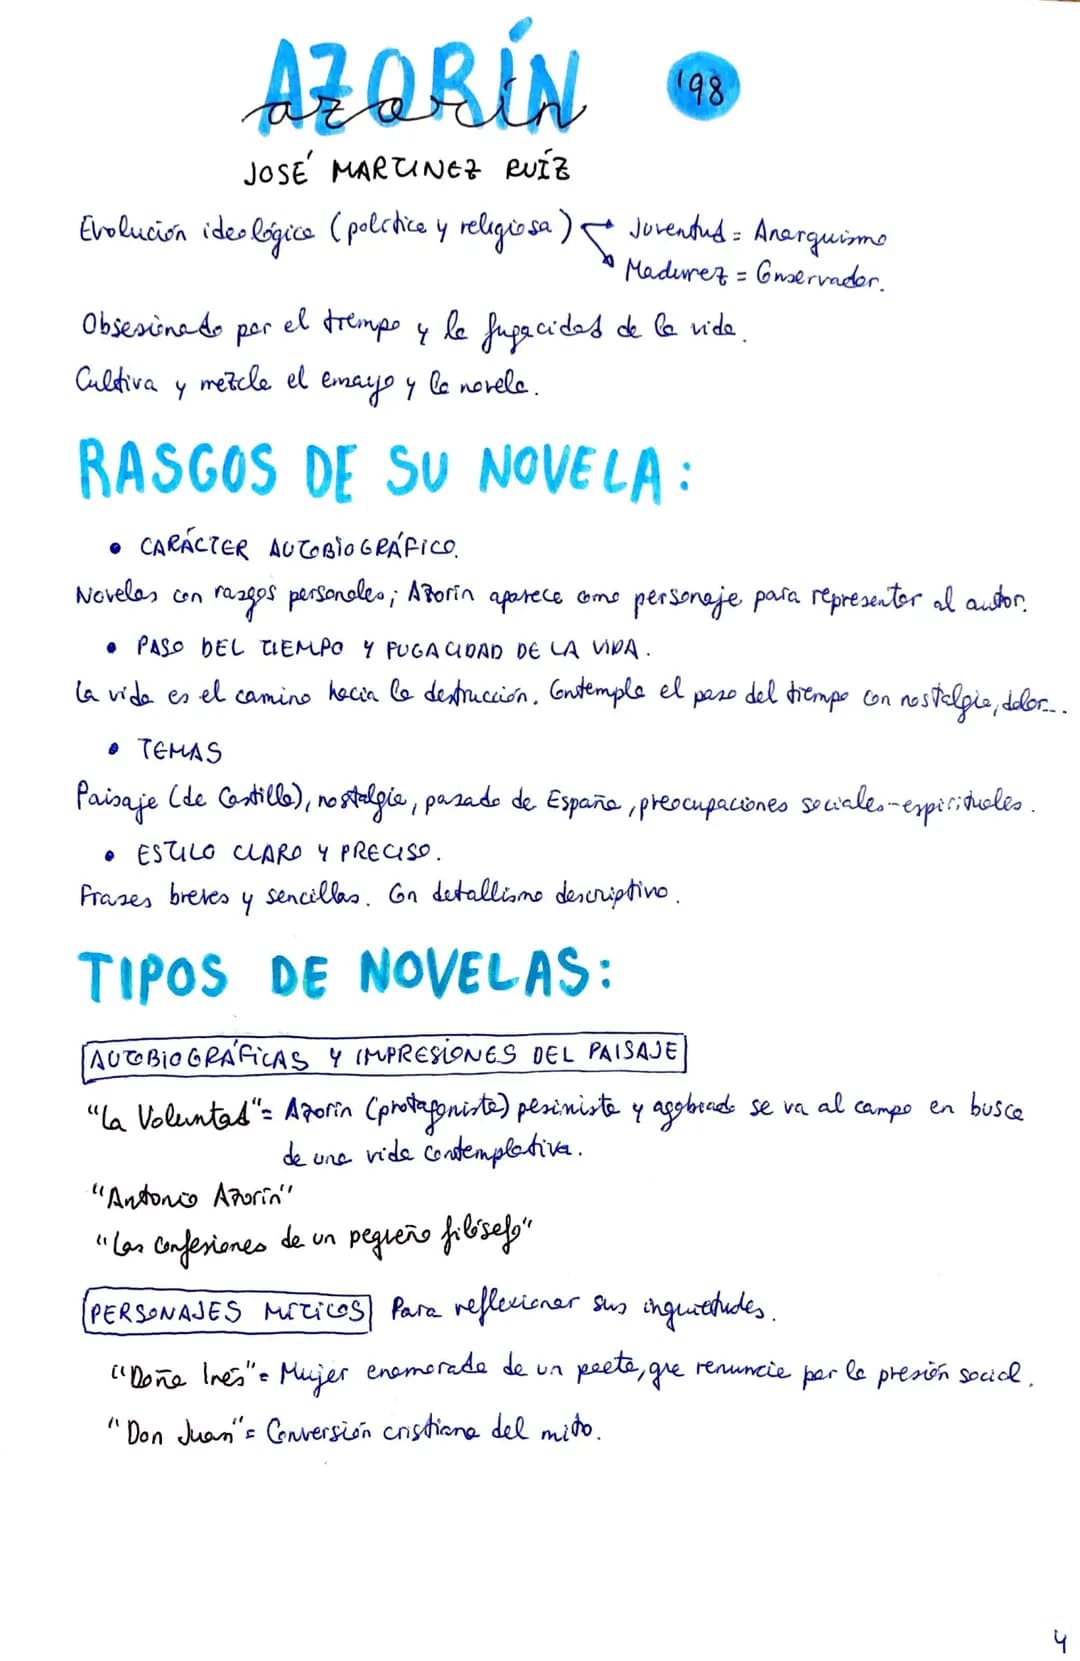 AZORÍN
azorín
'98
JOSÉ MARTINEZ RUÍZ
Evolución ideológica (política y religiosa) Juventud = Anarquismo
Madurez = Conservador.
Obsesionado por el tiempo y la fugacidad de la vida.
Cultiva y mezcla el ensayo y la novela.
RASGOS DE SU NOVELA:
• CARÁCTER AUTOBIOGRÁFICO.
Novelas con rasgos personales; Azorín aparece como personaje para representar al autor.
• PASO DEL TIEMPO Y FUGACIDAD DE LA VIDA.
La vida es el camino hacia la destrucción. Contempla el paso del tiempo con nostalgia, dolor...
• TEMAS
Paisaje (de Castilla), nostalgia, pasado de España, preocupaciones sociales-espirituales.
• ESTILO CLARO Y PRECISO.
Frases breves y sencillas. Con detallismo descriptivo.
TIPOS DE NOVELAS:
AUTOBIOGRÁFICAS Y IMPRESIONES DEL PAISAJE
"La Voluntad"= Azorín (protagonista) pesimista y agobiado se va al campo en busca
de una vida contemplativa.
"Antonio Azorín"
"Las confesiones de un pequeño filósofo"
PERSONAJES MÍTICOS Para reflexionar sus inquietudes.
"Doña Inés"= Mujer enamorada de un poeta, que renuncia por la presión social.
"Don Juan"= Conversión cristiana del mito.
4